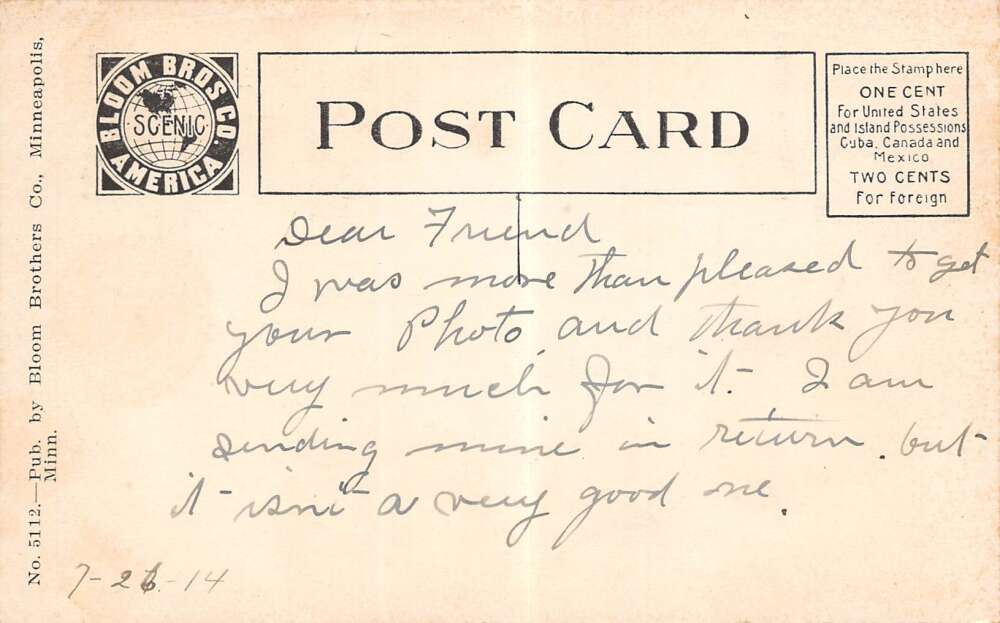 BLOOM BROS CO.
SCENIC
AMERICA
POST CARD
Place the Stamp here
ONE CENT
For United States
and Island Possessions
Cuba, Canada and
Mexico
TWO CENTS
For Foreign
Dear Friend
I was more than pleased to get
your Photo and thank you
very much for it. I am
sending mine in return, but
it isn't a very good one.
7-26-14
No. 5112.—Pub. by Bloom Brothers Co., Minneapolis,
Minn.